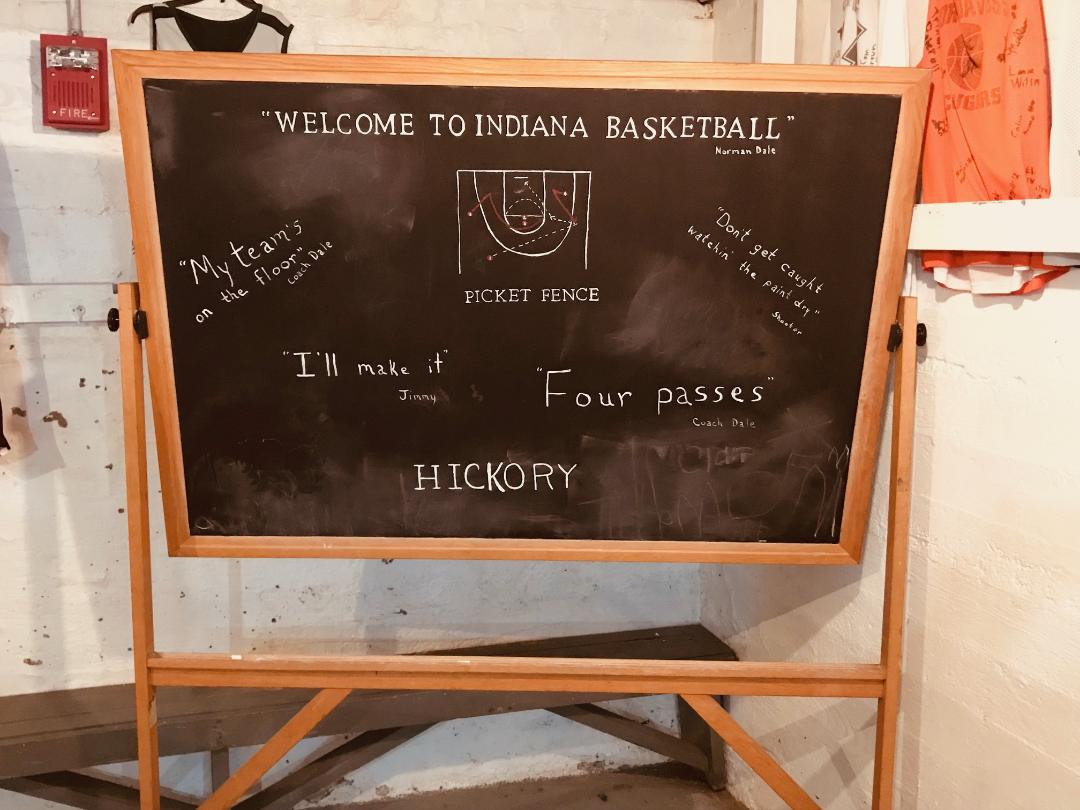 FIRE
"WELCOME TO INDIANA BASKETBALL"
Norman Dale
PICKET FENCE
"My team's
on the floor"
Coach Dale
"Don't get caught
watchin' the paint dry"
Shooter
"I'll make it"
Jimmy
"Four passes"
Coach Dale
HICKORY